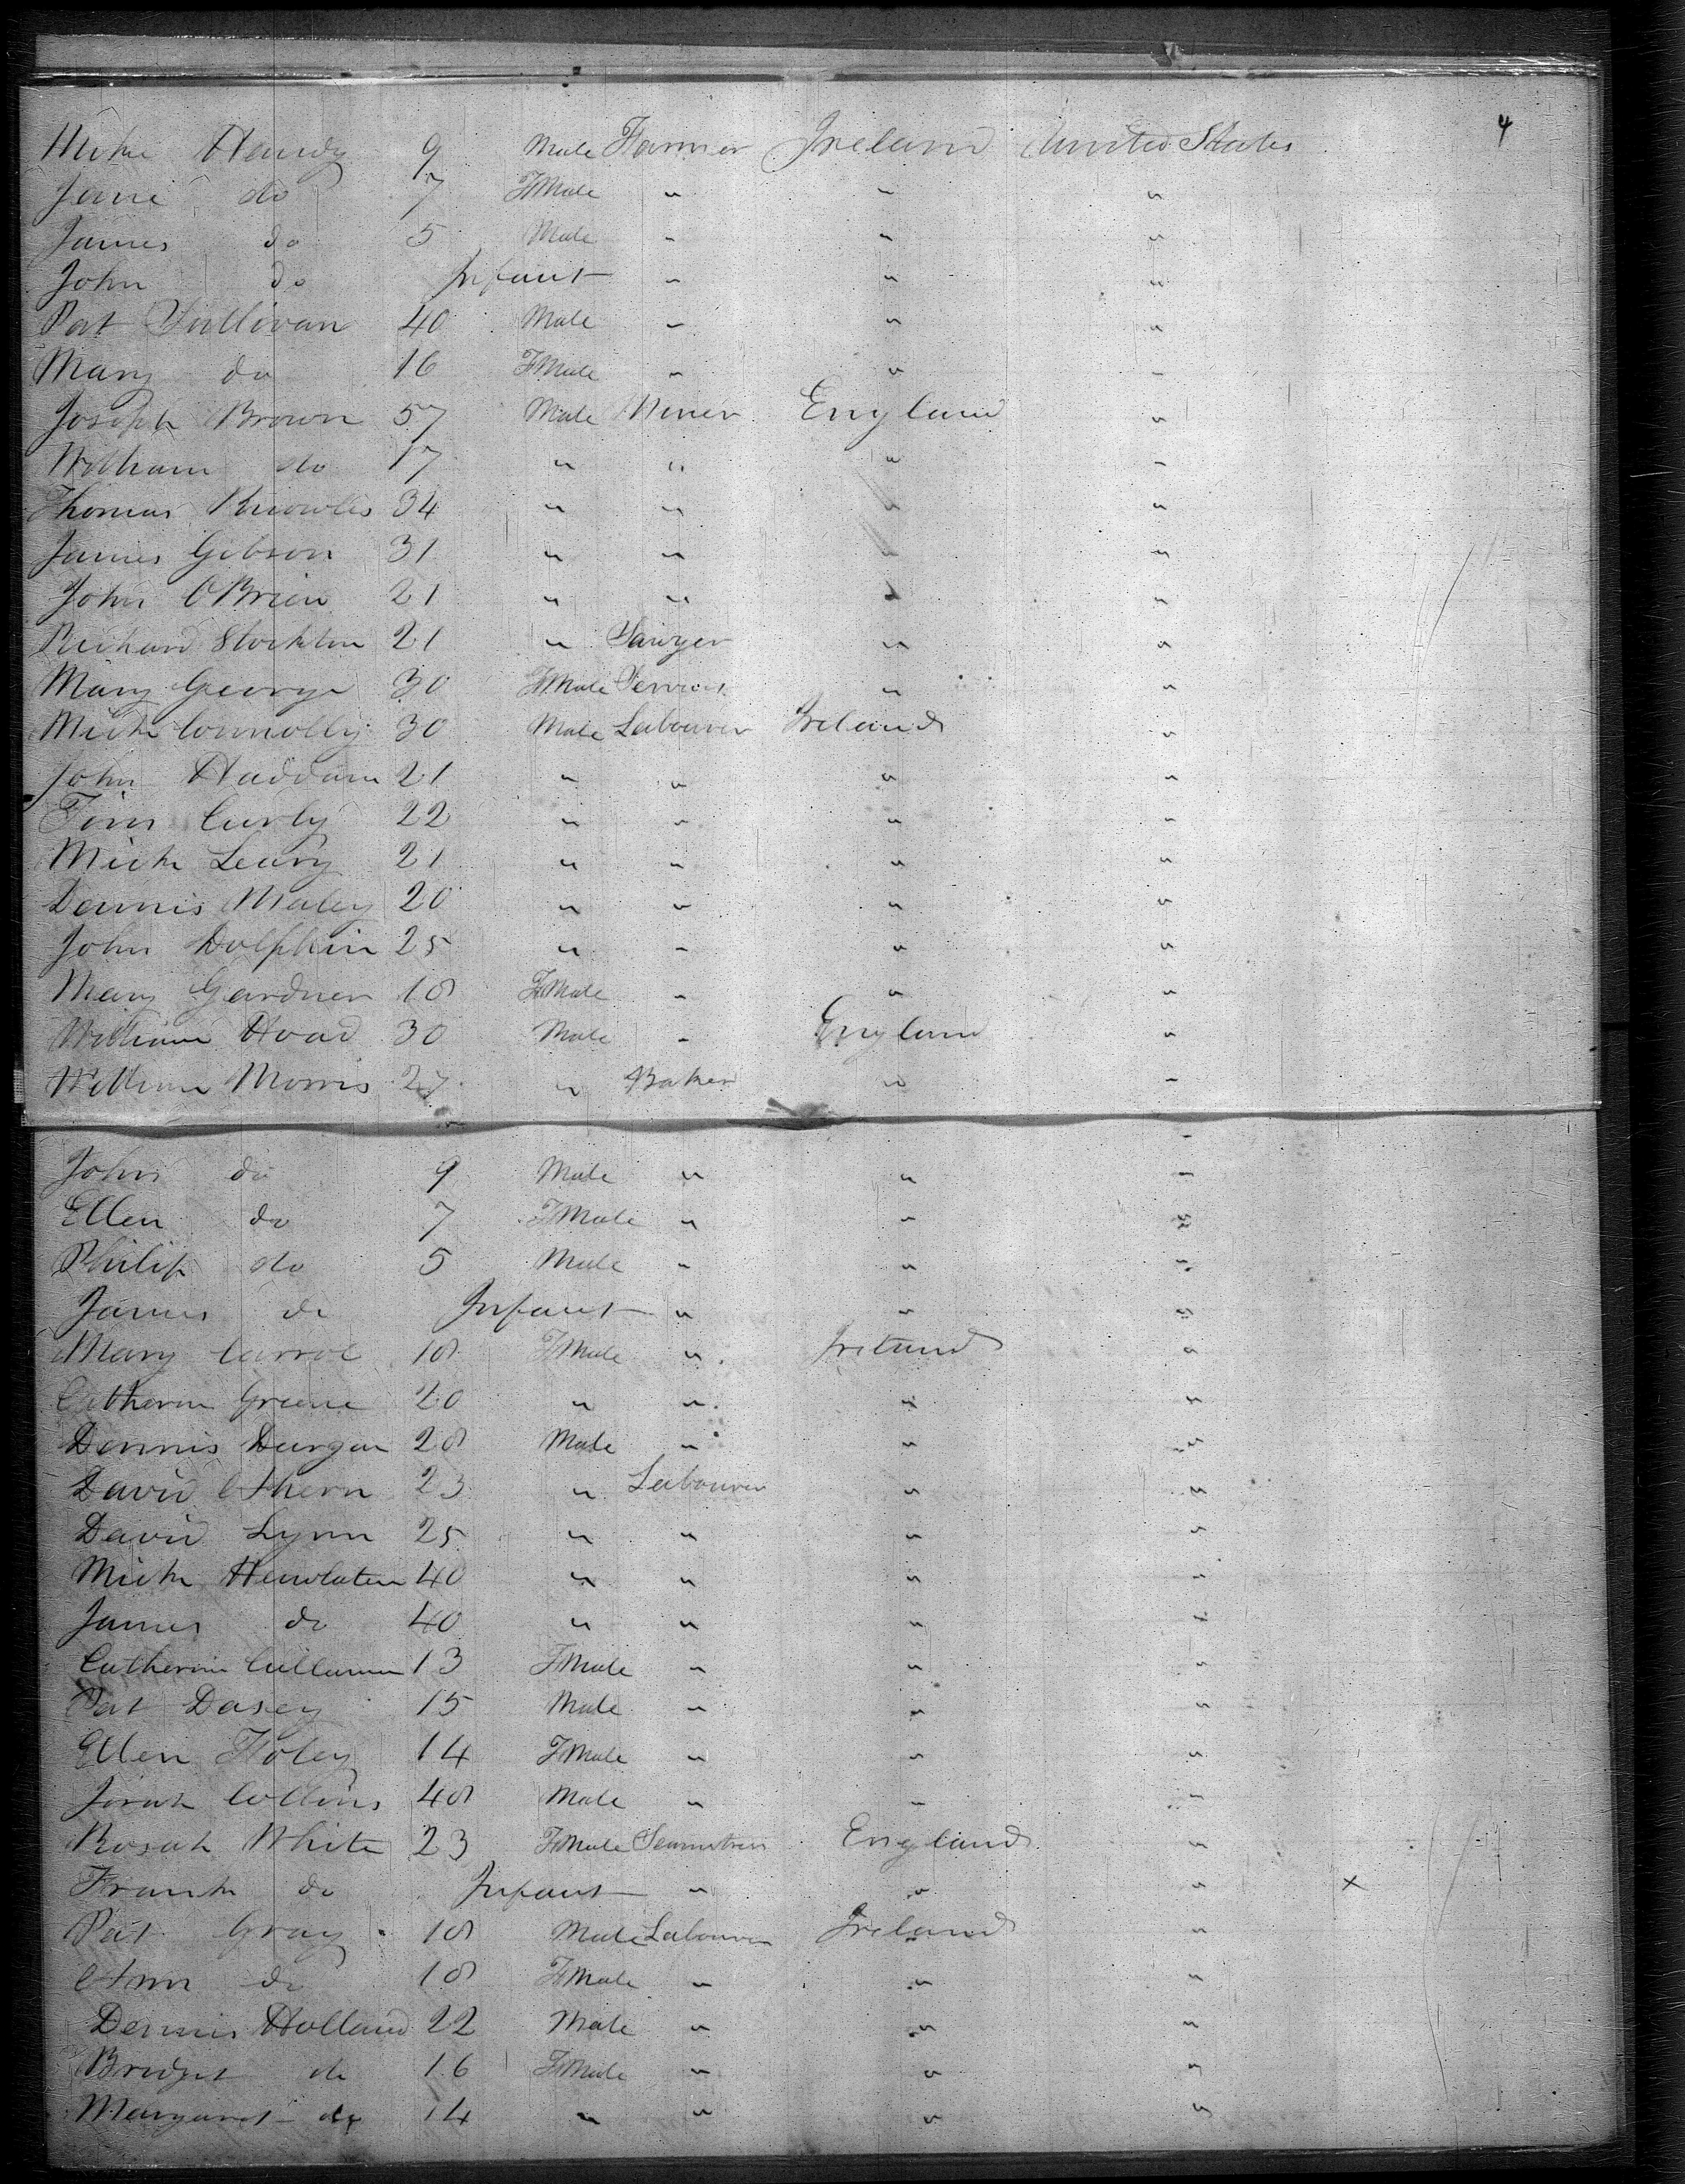 4
Mike Handy 9 Male Farmer Ireland United States
Jane do 7 FMale " " "
James do 5 Male " " "
John do Infant " " "
Pat Sullivan 40 Male " " "
Mary do 16 FMale " " "
Joseph Brown 57 Male Miner England "
William do 17 " " " "
Thomas Knowles 34 " " " "
James Gibson 31 " " " "
John OBrien 21 " " " "
Richard Stockton 21 " Sawyer " "
Mary George 30 FMale Servant " "
Mich Connolly 30 Male Labourer Ireland "
John Haddam 21 " " " "
Tim Curly 22 " " " "
Mich Leary 21 " " " "
Dennis Maley 20 " " " "
John Dolphin 25 " " " "
Mary Gardner 18 FMale " " "
William Hoad 30 Male " England "
William Morris 27 " Baker " "
"
John do 9 Male " " "
Ellen do 7 FMale " " "
Philip do 5 Male " " "
James do Infant " " "
Mary Carrol 18 FMale " Ireland "
Catherin Greene 20 " " " "
Dennis Durgan 28 Male " " "
David Ahern 23 " Labourer " "
David Lynn 25 " " " "
Mich 40 " " " "
James do 40 " " " "
Catherin 13 FMale " " "
Pat Dasey 15 Male " " "
Ellen Foley 14 FMale " " "
Collins 48 Male " " "
Rosah White 23 FMale Seamstress England "
Frank do Infant " " " x
Pat Gray 18 Male Labourer Ireland "
Ann do 18 FMale " " "
Dennis Holland 22 Male " " "
Bridget do 16 FMale " " "
Margaret do 14 " " " "